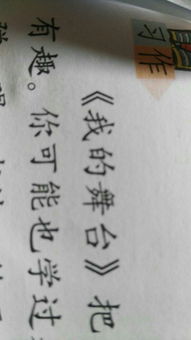 习作
《我的舞台》把
有趣。你可能也学过